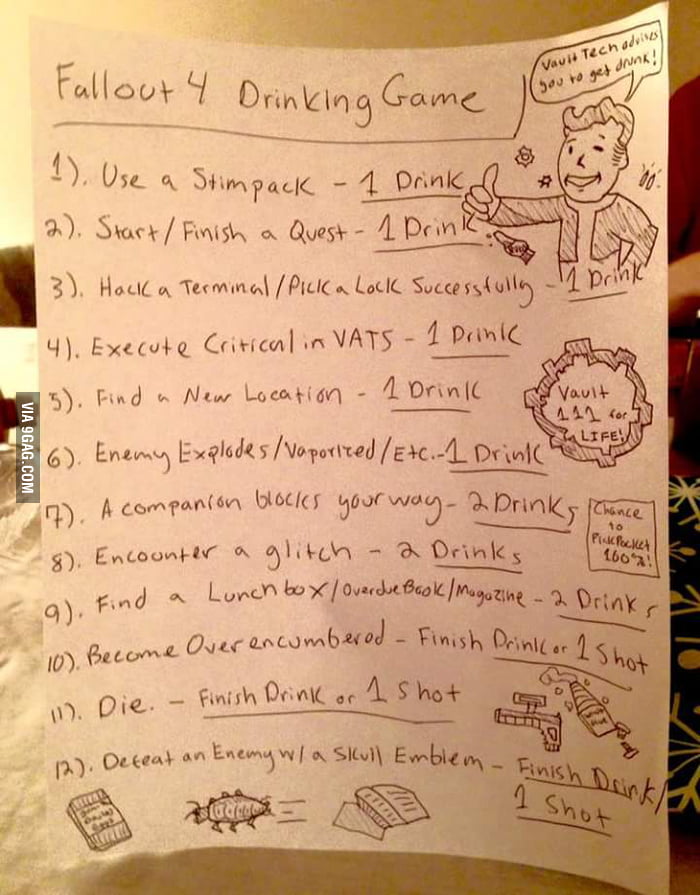 Vault Tech advises
you to get drunk!
Fallout 4 Drinking Game
1). Use a Stimpack - 1 Drink
2). Start/Finish a Quest - 1 Drink
3). Hack a Terminal/Pick a Lock Successfully - 1 Drink
4). Execute Critical in VATS - 1 Drink
5). Find a New Location - 1 Drink
Vault
111 for
LIFE!
6). Enemy Explodes/Vaporized/Etc. - 1 Drink
7). A companion blocks your way - 2 Drinks
Chance
to
PickPocket
100%!
8). Encounter a glitch - 2 Drinks
9). Find a Lunchbox/Overdue Book/Magazine - 2 Drinks
10). Become Overencumbered - Finish Drink or 1 Shot
11). Die. - Finish Drink or 1 Shot
12). Defeat an Enemy w/ a Skull Emblem - Finish Drink/
1 Shot
VIA 9GAG.COM